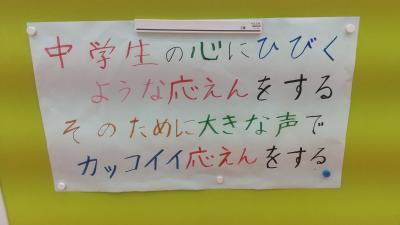 中学生の心にひびく
ような応えんをする
そのために大きな声で
カッコイイ応えんをする